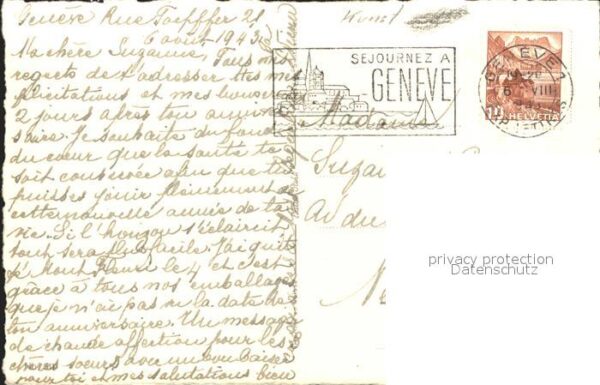 Genève Rue Toepffer 21
6 août 1943
Ma chère Suzanne, Tous mes
regrets de t'adresser mes
félicitations et mes
2 jours après ton anniver
saire. Je souhaite du fond
du cœur que la santé te
soit conservée afin que tu
puisses jouir pleinement de
cette nouvelle année de ta
vie. Si l'horizon s'éclaircit
tout sera plus facile. J'ai quitté
Mont Fleuri le 4 et c'est
grâce à tous nos emballages
que je n'ai pas vu la date de
ton anniversaire. Un message
de chaude affection pour les
chères sœurs avec un bon baiser
pour toi et mes salutations bien
SEJOURNEZ A
GENÈVE
GENÈVE 1
VIII
10
HELVETIA
Madame
Suza
Av du
Ne
privacy protection
Datenschutz